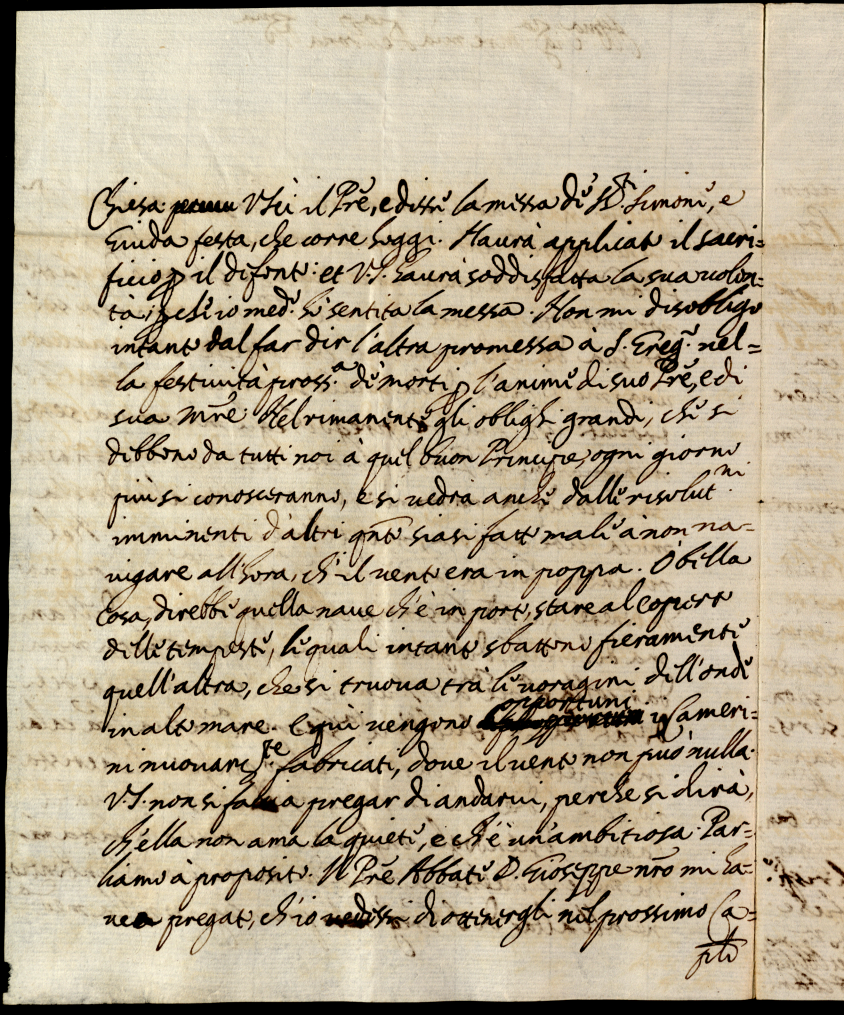 Chiesa: Uscì il Prē, e disse la messa de SS.ti Simone, e
Giuda festa, che corre hoggi. Haurà applicato il sacri=
ficio p il difonto: et V.S. haurà soddisfatta la sua uolon=
tà, pche io med.º hò sentita la messa. Non mi disobligo
intanto dal far dir l'altra promessa à S. Greg.º nel=
la festiuità pross.a de morti p l'anime di suo Prē, e di
sua Mrē. Nel rimanente gli oblighi grandi, che si
debbono da tutti noi à quel buon Principe, ogni giorno
più si conosceranno, e si uedrà anche dalle risolut.ni
imminenti d'altri qnto siasi fatto male à non na=
uigare all'hora, ch'il uento era in poppa. O bella
cosa, direbbe quella naue ch'è in porto, stare al coperto
delle tempeste, le quali intanto sbattono fieramente
quell'altra, che si truoua trà le uoragini dell'onde
in alto mare. E quì uengono opportuni i Cameri=
ni nuouam.te fabricati, doue il uento non può nulla.
V.S. non si faccia pregar di andarui, perche si dirà,
ch'ella non ama la quiete, e ch'è un'ambitiosa. Par=
liamo à proposito. Il Prē Abbate D. Gioseppe nrō mi ha=
uea pregato, ch'io di ottenergli nel prossimo Ca=
pitō